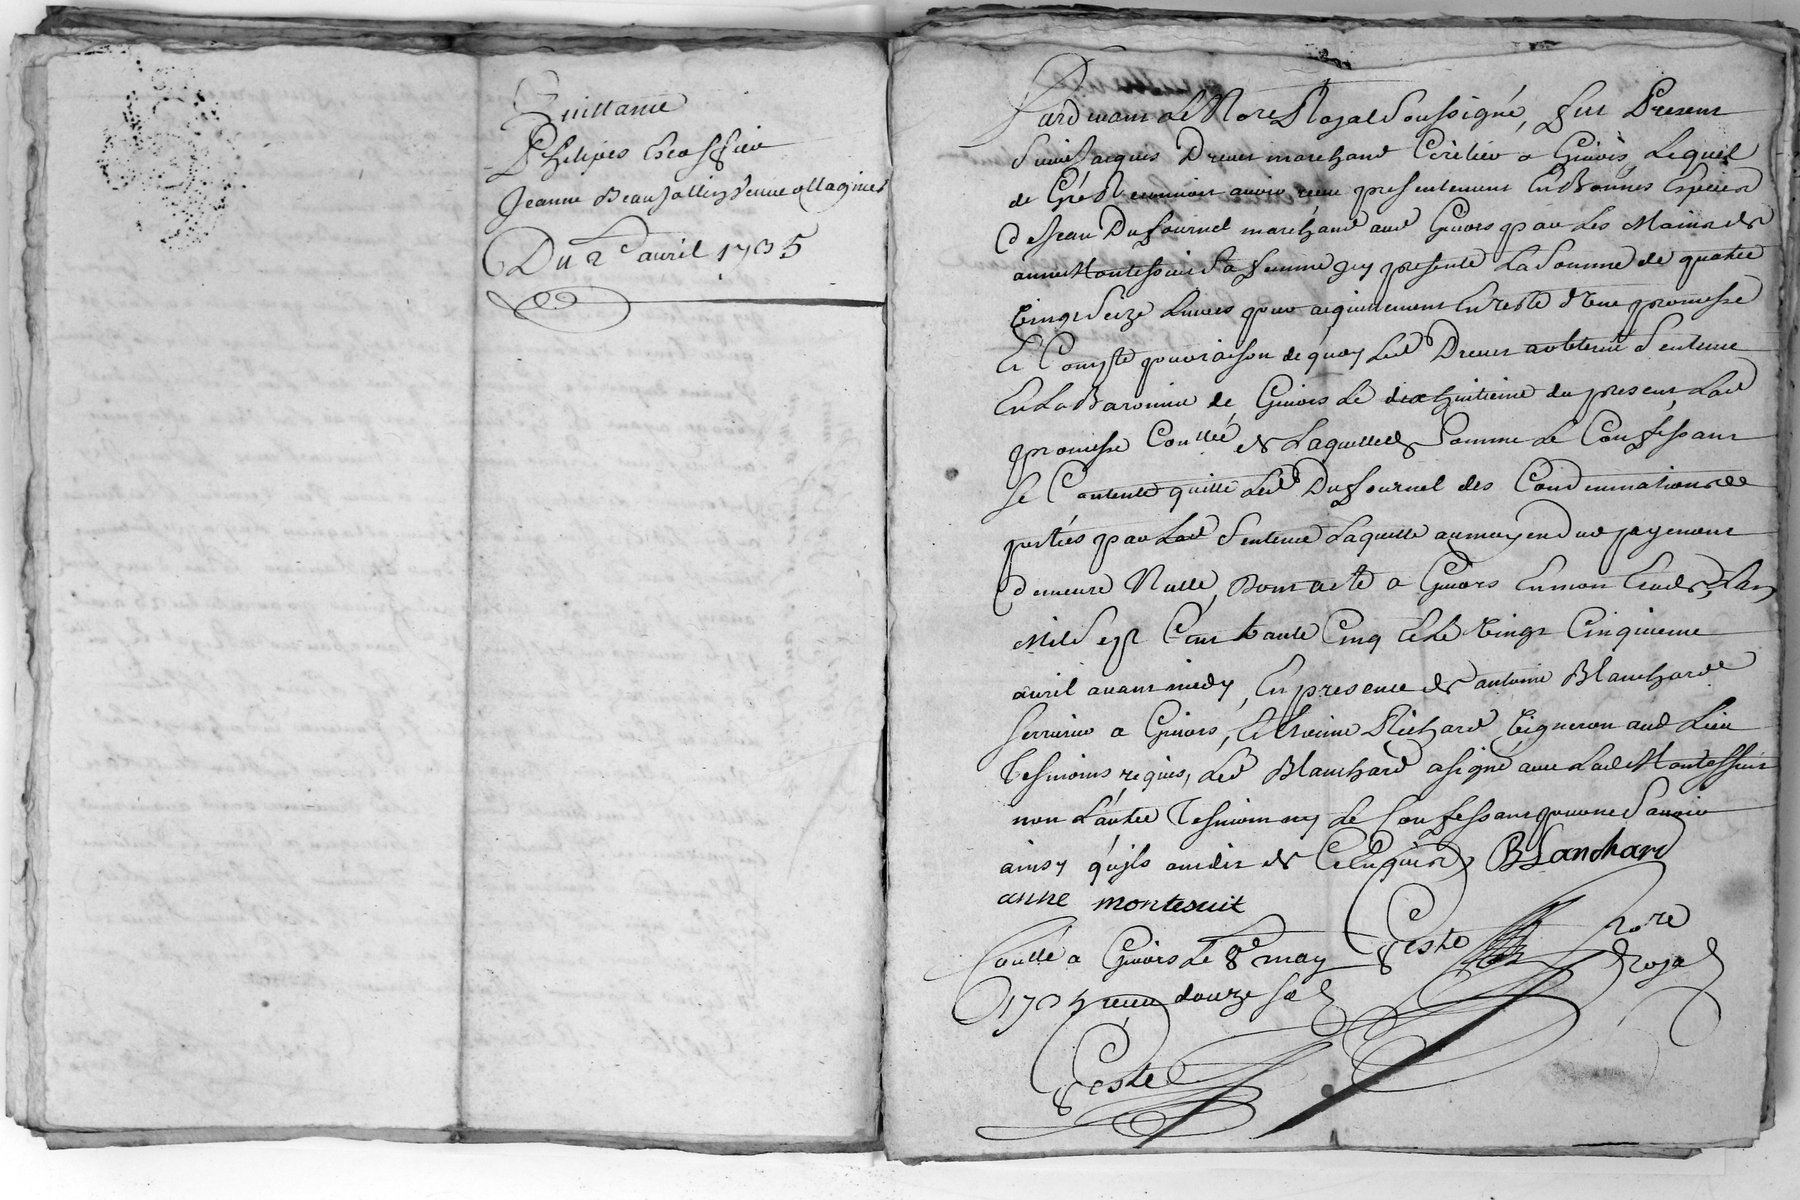 Quittance
Philipes
Jeanne Beaujollin Veuve Magnin
Du 2e avril 1735
Pardevant Le Nore Royal Soussigné, fut Present
Sieur Jacques Drevet marchand a Givors Lequel
de Gré Reconnoit avoir receu presentement En Bonnes Especes
de Jean Dufournel marchand aud Givors par Les Mains de
anne Montessuit Sa femme icy presente La Somme de quatre
Vingt Seize Livres pour aquittement En reste d'Une promesse
Et Compte pour raison de quoy Led Drevet a obtenu Sentence
En La Baronnie de Givors Le dix huitieme du present, Lad
promesse Contlée de Laquelle Somme Le Confessant
Se Contente quitte Led Dufournel des Condemnations
portées par Lad Sentence Laquelle au moyen dud payement
demeure Nulle, Dont acte a Givors En mon Etude, L'an
Mil Sept Cent trante Cinq Et Le Vingt Cinquieme
avril avant midy, En presence de antoine Blanchard
Serrurier a Givors, Et Etienne Richard Vigneron aud Lieu
Tesmoins requis, Led Blanchard a signé avec Lad Montessuit
non L'autre Tesmoin ny Le Confessant pour ne Savoir
ainsy qu'ils ont dit de Ce Enquis Blanchard
anne montesuit
Contlé a Givors Le 8e may Teste Nore
1735 receu douze sols Royal
Teste